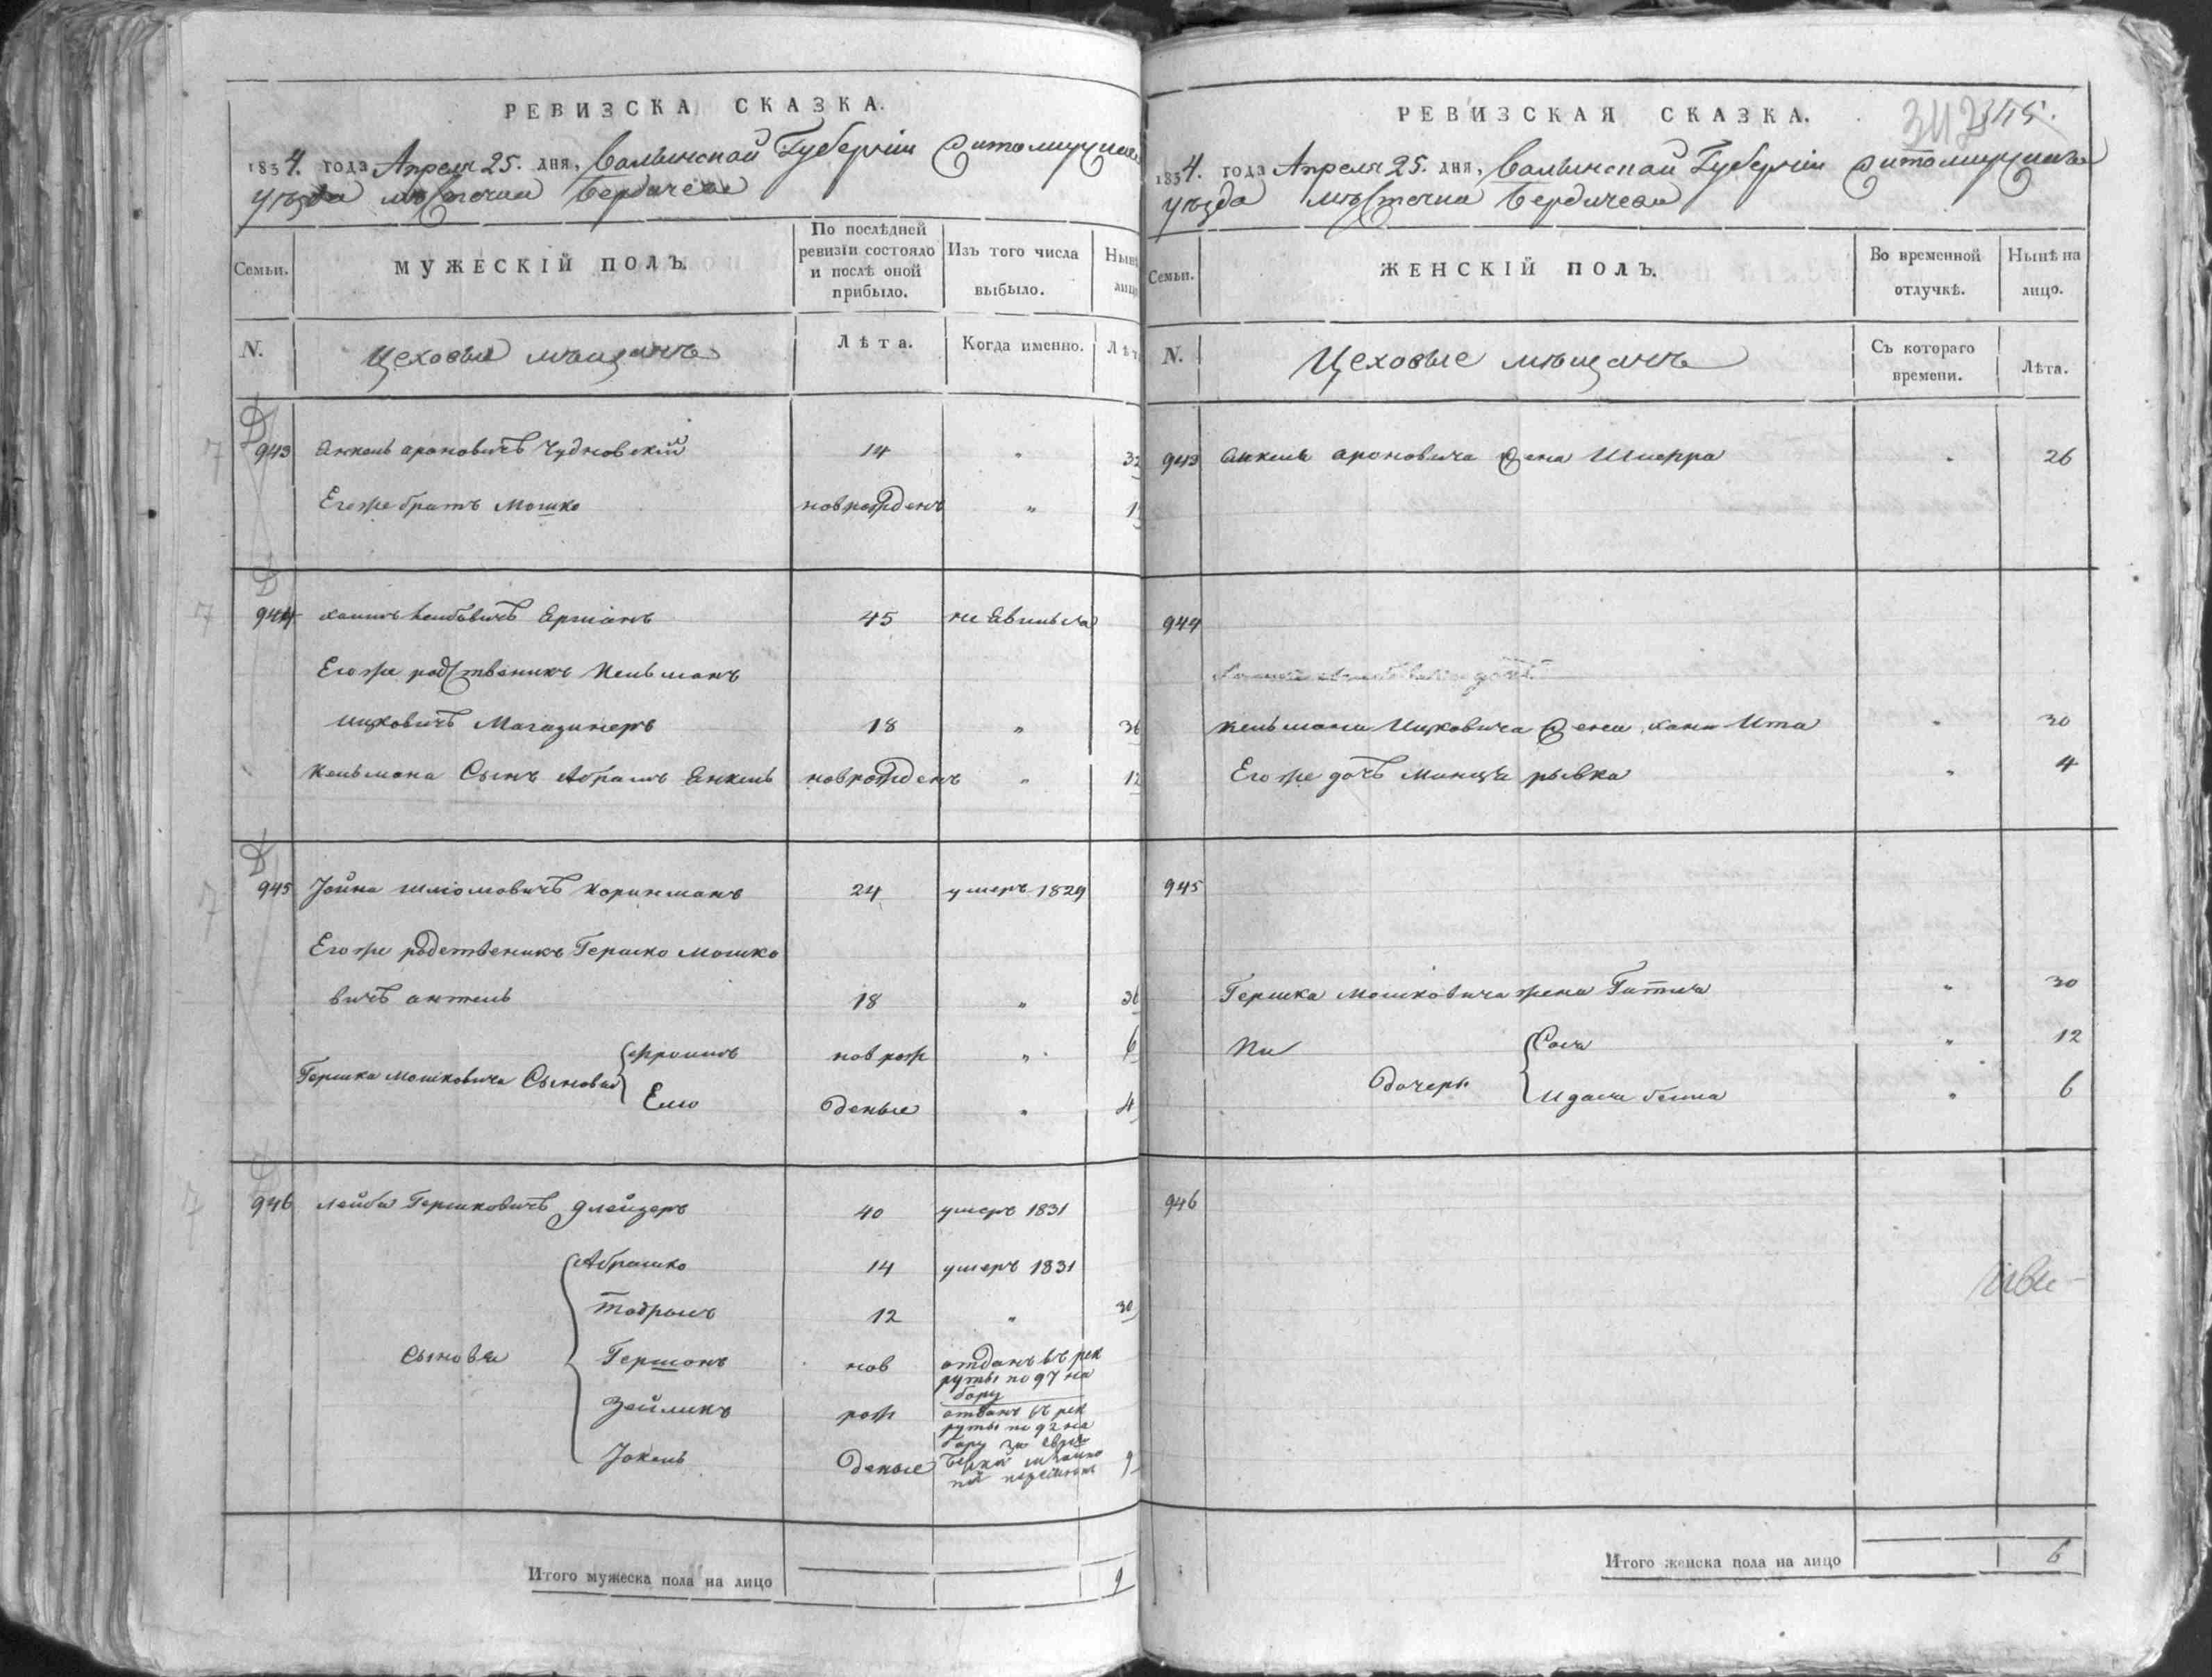 РЕВИЗСКА СКАЗКА.
1834. года Апреля 25. дня, Волынской Губернии Житомирскаго
уѣзда мѣстечка Бердичева
Семьи.
МУЖЕСКІЙ ПОЛЪ.
По послѣдней ревизіи состояло и послѣ оной прибыло.
Изъ того числа выбыло.
N.
Цеховые мѣщанъ
Лѣта.
Когда именно.
943 Янкель ароновичъ Чудновскій 14 „ 32
Егоже братъ Мошко новрожденъ „
944 хаимъ Лейбовичъ Ерманъ 45 не явился
Егоже родственикъ Кельманъ
Ицковичъ Магазинеръ 18 „ 36
Кельмана Сынъ Абрамъ Янкель новрожденъ „ 12
945 Іойна шліомовичъ Коринманъ 24 умеръ 1829
Егоже родственикъ Гершко Мошко
вичъ антель 18 „ 36
Гершка мошковича Сыновья Фроимъ нов рож „ 6
Елю деные „ 4
946 Лейба Гершковичъ Глейзеръ 40 умеръ 1831
Абрашко 14 умеръ 1831
Тодрысъ 12 „ 30
Сыновя Гершонъ нов отданъ въ рек
руты по 97 на
бору
Зейликъ рож отданъ въ рек
руты по 92 на
бору за
Іокель деные 9
Итого мужеска пола на лицо 9
РЕВИЗСКАЯ СКАЗКА. 345.
1834. года Апреля 25. дня, Волынской Губернии Житомирскаго
уѣзда мѣстечка Бердичева
Семьи.
ЖЕНСКІЙ ПОЛЪ.
Во временной отлучкѣ.
Нынѣ на лицо.
N.
Цеховые мѣщанъ
Съ котораго времени.
Лѣта.
943 Янкеля ароновича жена Шифра „ 26
944
Кельмана Ицковича жена хана Ита „ 30
Егоже дочь Минця рывка „ 4
945
Гершка Мошковича жена Гитля „ 30
Их дочери Сося „ 12
Идася бейла „ 6
946
Итого женска пола на лицо 6